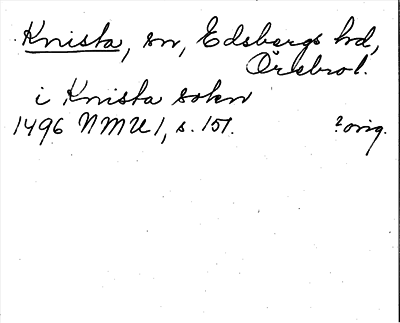 Knista, sn, Edsbergs hd,
Örebro l.
i Knista sokn
1496 NMU 1, s. 151. ? orig.